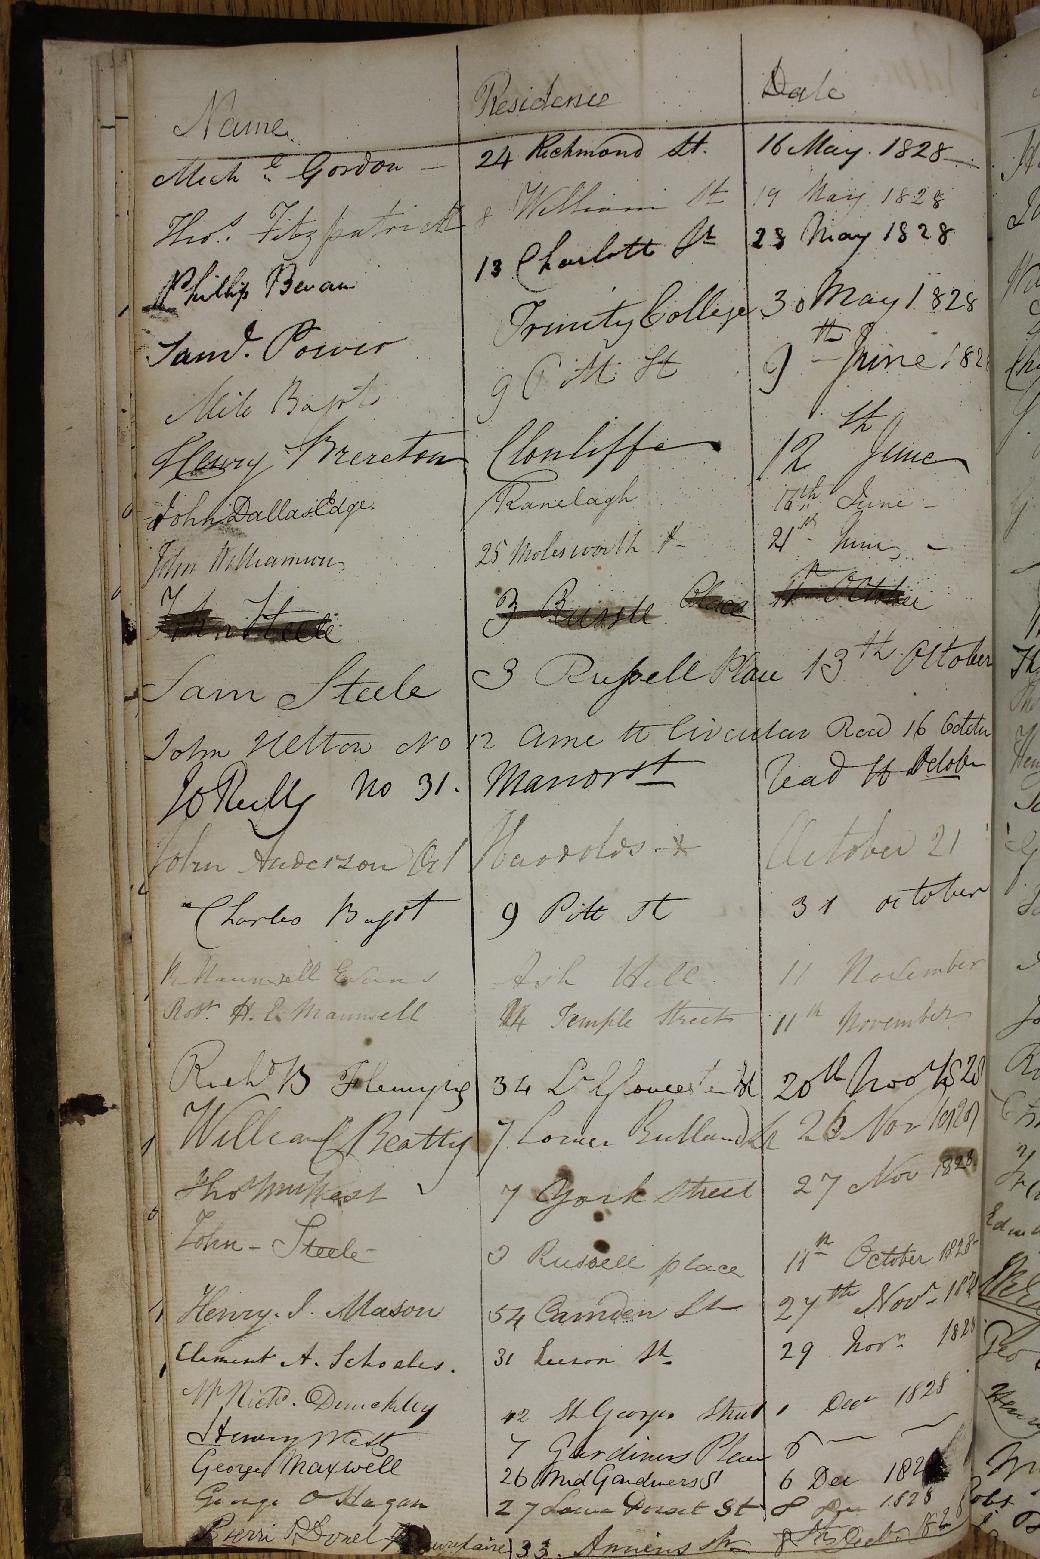 Name Residence Date
Mich l Gordon - 24 Richmond St. 16 May 1828
Thos. Fitzpatrick 8 William St 19 May 1828
Phillip Bevan 13 Charlott St 23 May 1828
Saml. Power Trinity College 30 May 1828
Milo Bagot 9 Pitt St 9th June 182
Henry Brereton Clonliffe 12th June
John Dallas Edge. Ranelagh 16th June -
John Williamson 25 Molesworth St 21st June -
John Steele 3 Russell Place 11th October
Sam Steele 3 Russell Place 13th October
John Nelton No 12 Circular Road 16 October
JO Reilly No 31. Manor St October
John Anderson Harolds + October 21
Charles Bagot 9 Pitt St 31 october
Maunsell Evans Ash Hill 11 November
Robt. H. E. Maunsell 14 Temple Street 11th November
Richd B Flemyng 34 Lr Gloucester St 20th Nov 1828
William Beatty 7 Lower Rutland St 26 Nov 1828
Thos West 7 York Street 27 Nov 1828
John - Steele 3 Russell place 11th October 1828
Henry. J. Mason 54 Camden St 27th Novr. 1828
Clement A. Schoales. 31 Leeson St 29 Novr. 1828
Mr Richd. Dunckley 42 St Georges Street 1 Decr 1828
Henry West 7 Gardiners Place 6
George Maxwell 26 Mid Gardiners St 6 Dec 182
George O Hagan 27 Lower Dorset St 8 Dec 1828
33. Amiens St 8